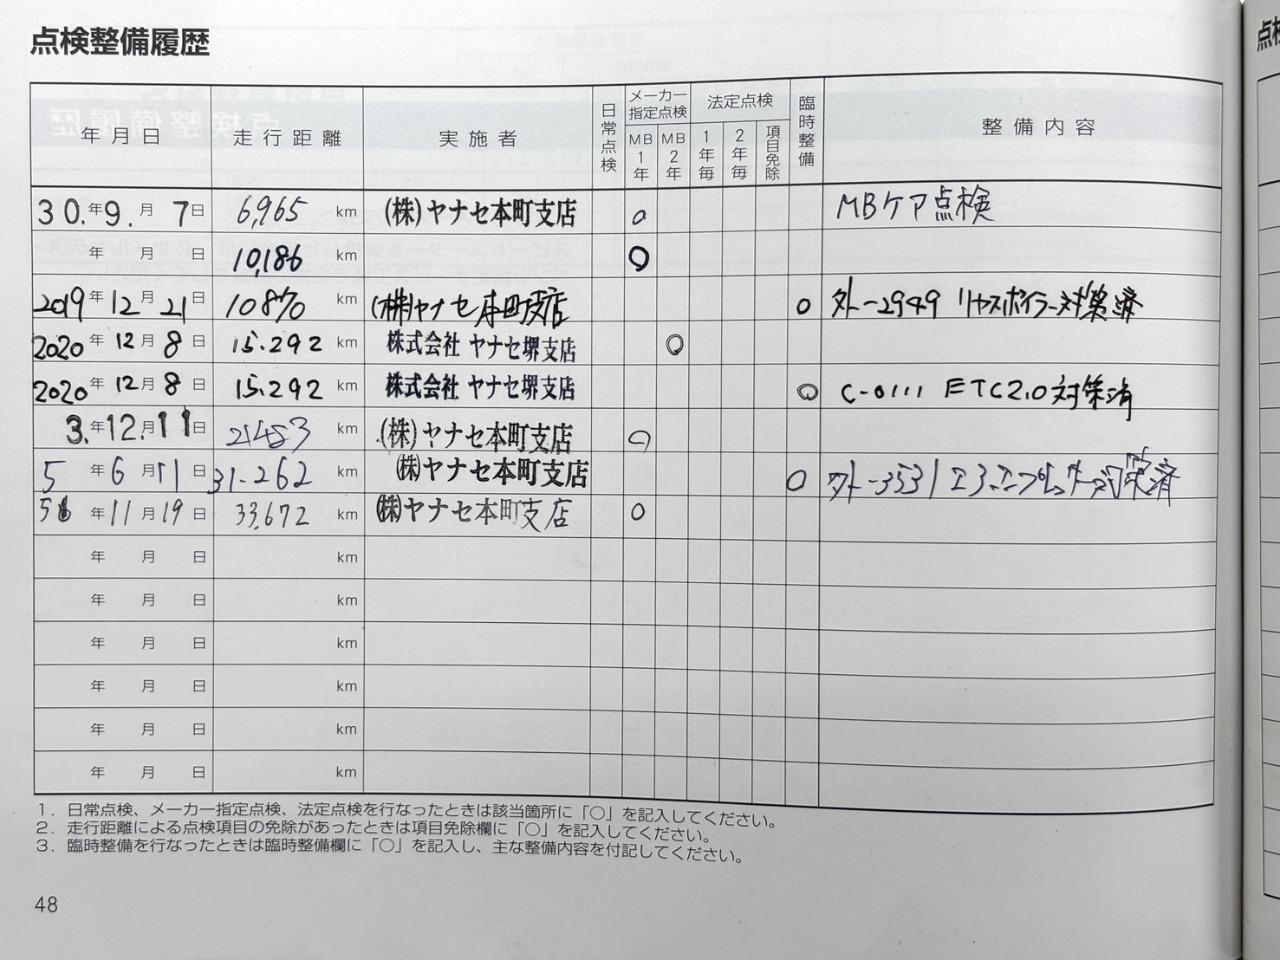 点検整備履歴
年月日 走行距離 実施者 日常点検 メーカー指定点検 MB1年 MB2年 法定点検 1年毎 2年毎 項目免除 臨時整備 整備内容
30.年9.月7日 6,965 km (株)ヤナセ本町支店 ○ MBケア点検
年 月 日 10,186 km ○
2019年12月21日 km (株)ヤナセ本町支店 ○ 外-2949 リヤスポイラー対策済
2020年12月8日 15.292 km 株式会社 ヤナセ堺支店 ○
2020年12月8日 15.292 km 株式会社 ヤナセ堺支店 ○ C-0111 ETC2.0対策済
3.年12.月11日 21453 km (株)ヤナセ本町支店 ○
5年6月11日 31.262 km (株)ヤナセ本町支店 ○ 外-3531 対策済
年11月19日 33,672 km (株)ヤナセ本町支店 ○
年 月 日 km
年 月 日 km
年 月 日 km
年 月 日 km
年 月 日 km
年 月 日 km
1. 日常点検、メーカー指定点検、法定点検を行なったときは該当箇所に「○」を記入してください。
2. 走行距離による点検項目の免除があったときは項目免除欄に「○」を記入してください。
3. 臨時整備を行なったときは臨時整備欄に「○」を記入し、主な整備内容を付記してください。
48